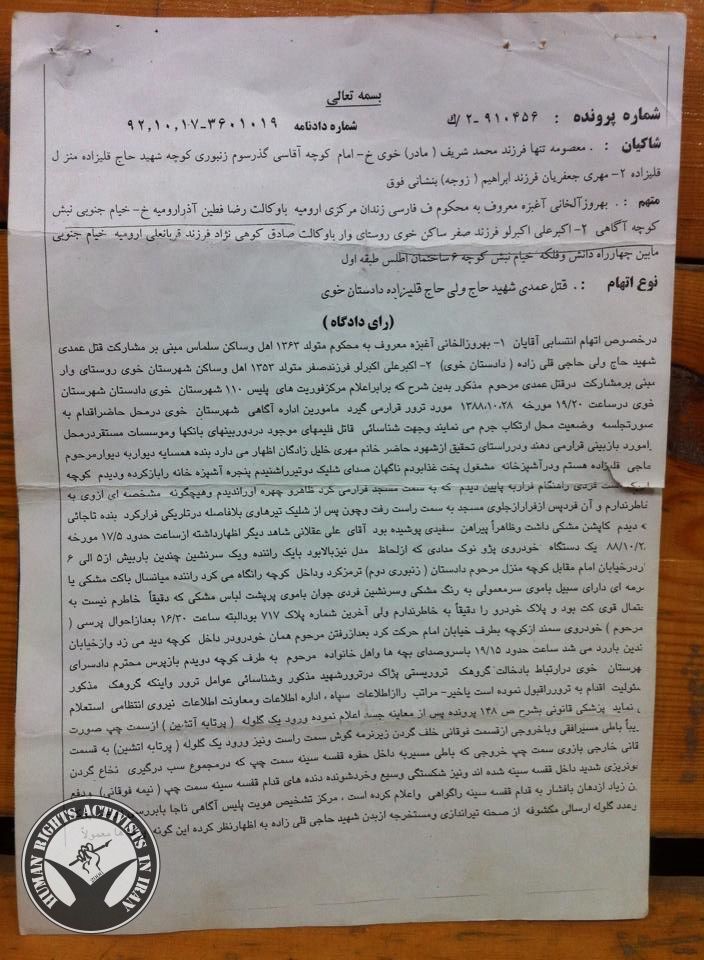 بسمه تعالی
شماره پرونده : ۹۱۰۴۵۶-۲/ک شماره دادنامه ۳۶۰۱۰۱۹-۹۲,۱۰,۱۷
شاکیان : . معصومه تنها فرزند محمد شریف ( مادر) خوی خ- امام کوچه آقاسی گذرسوم زنبوری کوچه شهید حاج قلیزاده منز ل
قلیزاده ۲- مهری جعفریان فرزند ابراهیم ( زوجه) بنشانی فوق
متهم : . بهروزآلخانی آغبزه معروف به محکوم ف فارسی زندان مرکزی ارومیه باوکالت رضا فطین آذرارومیه خ- خیام جنوبی نبش
کوچه آگاهی ۲- اکبرعلی اکبرلو فرزند صفر ساکن خوی روستای وار باوکالت صادق کوهی نژاد فرزند قربانعلی ارومیه خیام جنوبی
مابین چهارراه دانش وفلکه خیام نبش کوچه ۶ ساختمان اطلس طبقه اول
نوع اتهام : . قتل عمدی شهید حاج ولی حاج قلیزاده دادستان خوی
(رای دادگاه )
درخصوص اتهام انتسابی آقایان ۱- بهروزالخانی آغبزه معروف به محکوم متولد ۱۳۶۳ اهل وساکن سلماس مبنی بر مشارکت قتل عمدی
شهید حاج ولی حاجی قلی زاده ( دادستان خوی) ۲- اکبرعلی اکبرلو فرزندصفر متولد ۱۳۵۳ اهل وساکن شهرستان خوی روستای وار
مبنی برمشارکت درقتل عمدی مرحوم مذکور بدین شرح که برابراعلام مرکزفوریت های پلیس ۱۱۰ شهرستان خوی دادستان شهرستان
خوی درساعت ۱۹/۲۰ مورخه ۱۳۸۸,۱۰,۲۸ مورد ترور قرارمی گیرد مامورین اداره آگاهی شهرستان خوی درمحل حاضراقدام به
صورتجلسه وضعیت محل ارتکاب جرم می نمایند وجهت شناسائی قاتل فیلمهای موجود دردوربینهای بانکها وموسسات مستقردرمحل
رامورد بازبینی قرارمی دهند ودرراستای تحقیق ازشهود حاضر خانم مهری خلیل زادگان اظهار می دارد بنده همسایه دیواربه دیوارمرحوم
حاجی قلیزاده هستم ودرآشپزخانه مشغول پخت غذابودم ناگهان صدای شلیک دوتیرراشنیدم پنجره آشپزه خانه رابازکرده ودیدم کوچه
فردی راهنگام فراربه پایین دیدم که به سمت مسجد فرارمی کرد ظاهرو چهره اوراندیدم وهیچگونه مشخصه ای ازوی به
خاطرندارم و آن فردپس ازفرارازجلوی مسجد به سمت راست رفت وچون پس از شلیک تیرهاوی بلافاصله درتاریکی فرارکرد بنده تاجائی
که دیدم کاپشن مشکی داشت وظاهراً پیراهن سفیدی پوشیده بود آقای علی عقلانی شاهد دیگر اظهارداشته ازساعت حدود ۱۷/۵ مورخه
۸۸/۱۰/۲ یک دستگاه خودروی پژو نوک مدادی که ازلحاظ مدل نیزبالابود بایک راننده ویک سرنشین چندین باربیش از۵ الی ۶
باردرخیابان امام مقابل کوچه منزل مرحوم دادستان ( زنبوری دوم) ترمزکرد وداخل کوچه رانگاه می کرد راننده میانسال باکت مشکی یا
سرمه ای دارای سبیل باموی سرمعمولی به رنگ مشکی وسرنشین فردی جوان باموی پرپشت لباس مشکی که دقیقاً خاطرم نیست به
احتمال قوی کت بود و پلاک خودرو را دقیقاً به خاطرندارم ولی آخرین شماره پلاک ۷۱۷ بودالبته ساعت ۱۶/۳۰ بعدازاحوال پرسی (
مرحوم ) خودروی سمند ازکوچه بطرف خیابان امام حرکت کرد بعدازرفتن مرحوم همان خودرودر داخل کوچه دید می زد وازخیابان
چندین باررد می شد ساعت حدود ۱۹/۱۵ باسروصدای بچه ها واهل خانواده مرحوم به طرف کوچه دویدم بازپرس محترم دادسرای
شهرستان خوی درارتباط بادخالت گروهک تروریستی پژاک درترورشهید مذکور وشناسائی عوامل ترور واینکه گروهک مذکور
مسئولیت اقدام به ترورراقبول نموده است یاخیر- مراتب راازاطلاعات سپاه ، اداره اطلاعات ومعاونت اطلاعات نیروی انتظامی استعلام
می نماید پزشکی قانونی بشرح ص ۱۴۸ پرونده پس از معاینه جسد اعلام نموده ورود یک گلوله ( پرتابه آتشین ) ازسمت چپ صورت
تقریباً باطی مسیرافقی وباخروجی ازقسمت فوقانی خلف گردن زیرنرمه گوش سمت راست ونیز ورود یک گلوله ( پرتابه اتشین) به قسمت
فوقانی خارجی بازوی سمت چپ خروجی که باطی مسیربه داخل حفره قفسه سینه سمت چپ که درمجموع سب درگیری نخاع گردن
خونریزی شدید داخل قفسه سینه شده اند ونیز شکستگی وسیع وخردشونده دنده های قدام قفسه سینه سمت چپ ( نیمه فوقانی) ودفع
خون زیاد ازدهان بافشار به قدام قفسه سینه راگواهی واعلام کرده است ، مرکز تشخیص هویت پلیس آگاهی ناجا بابررسی
عدد گلوله ارسالی مکشوفه از صحنه تیراندازی ومستخرجه ازبدن شهید حاجی قلی زاده به اظهارنظر کرده این گونه ها معمولاً
HUMAN RIGHTS ACTIVISTS IN IRAN